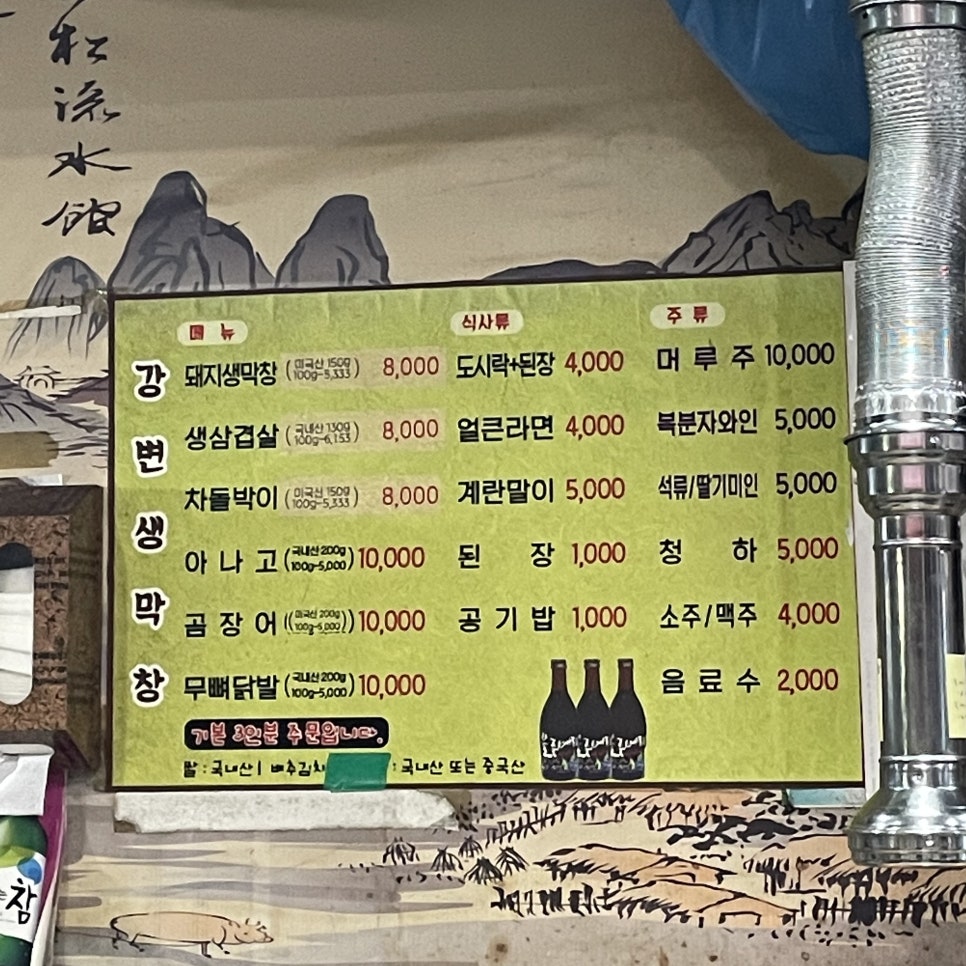 松
流
水
館
강변생막창
메뉴
돼지생막창 (미국산 150g 100g-5,333) 8,000
생삼겹살 (국내산 130g 100g-6,153) 8,000
차돌박이 (미국산 150g 100g-5,333) 8,000
아나고 (국내산 200g 100g-5,000) 10,000
곰장어 (미국산 200g 100g-5,000) 10,000
무뼈닭발 (국내산 200g 100g-5,000) 10,000
기본 3인분 주문입니다.
쌀 : 국내산 | 배추김치 : 국내산 또는 중국산
식사류
도시락+된장 4,000
얼큰라면 4,000
계란말이 5,000
된장 1,000
공기밥 1,000
주류
머루주 10,000
복분자와인 5,000
석류/딸기미인 5,000
청하 5,000
소주/맥주 4,000
음료수 2,000
참